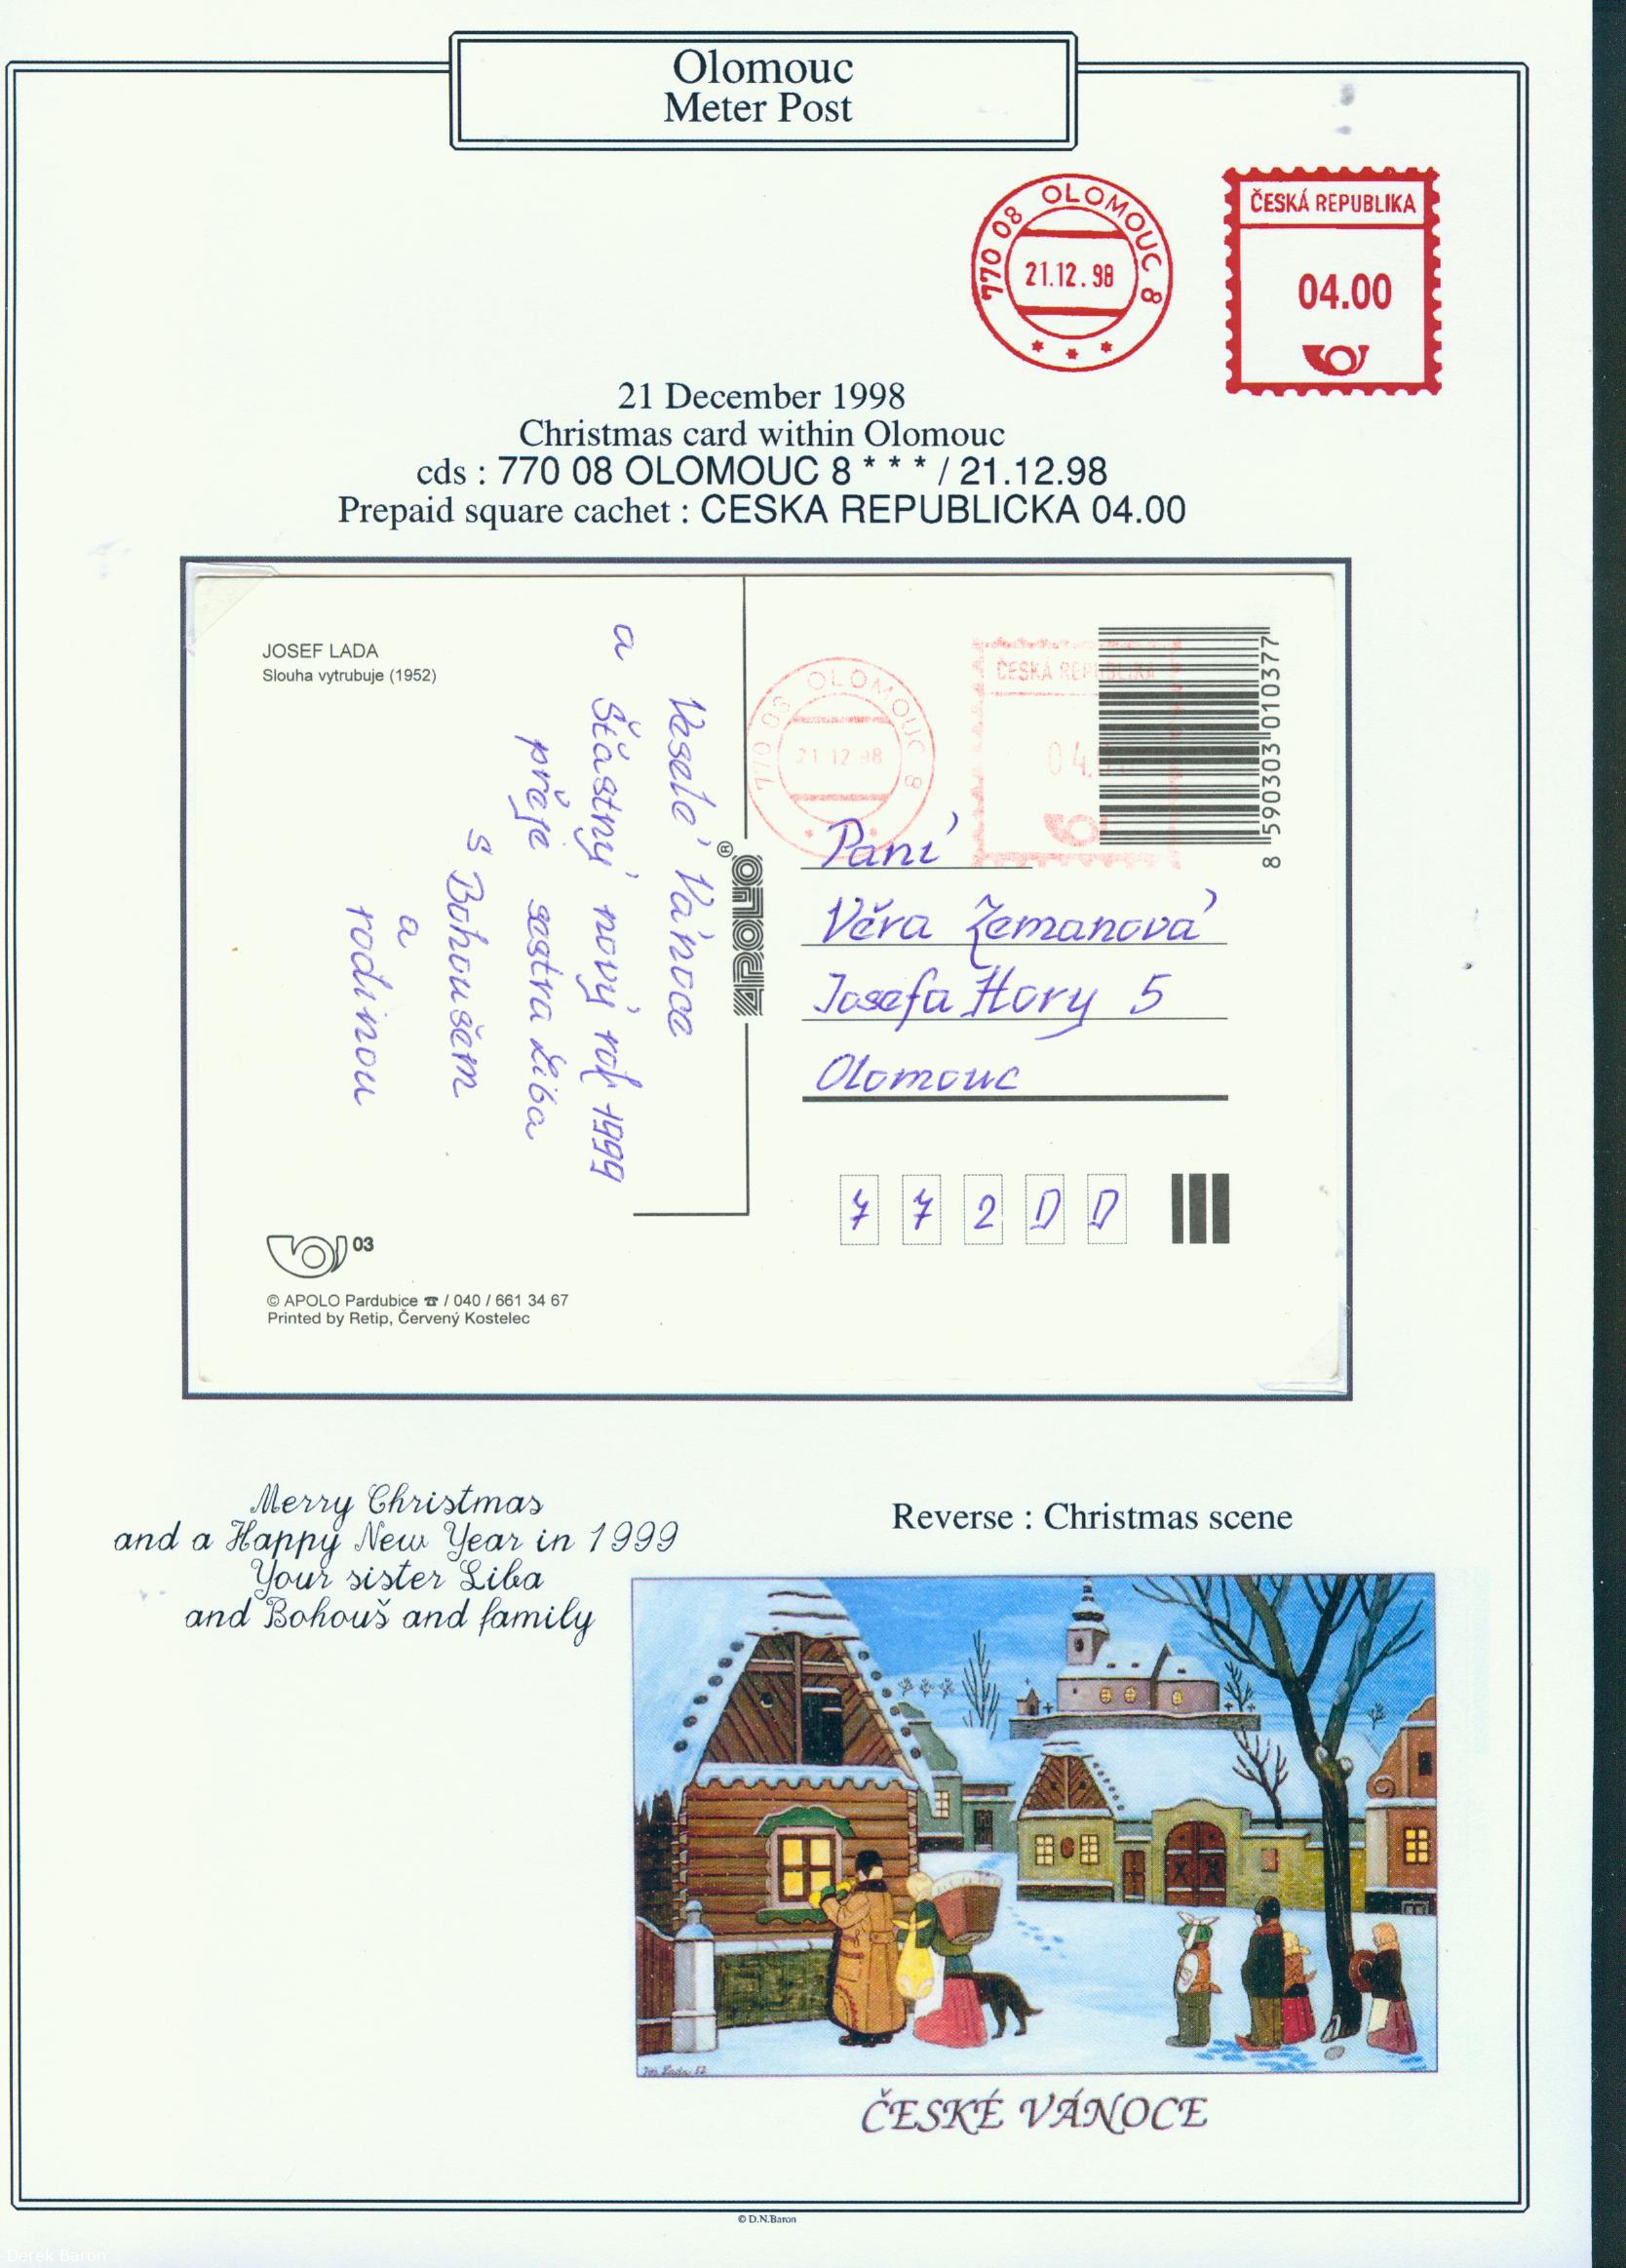 Olomouc
Meter Post
770 08 OLOMOUC 8
21.12.98
* * *
ČESKÁ REPUBLIKA
04.00
21 December 1998
Christmas card within Olomouc
cds : 770 08 OLOMOUC 8 * * * / 21.12.98
Prepaid square cachet : CESKA REPUBLICKA 04.00
JOSEF LADA
Slouha vytrubuje (1952)
Veselé Vánoce
a Šťastný nový rok 1999
přeje sestra Liba
s Bohoušem
a
rodinou
APOLO®
03
© APOLO Pardubice ☎ / 040 / 661 34 67
Printed by Retip, Červený Kostelec
770 08 OLOMOUC 8
21.12.98
ČESKÁ REPUBLIKA
8 590303 010377
Paní
Věra Zemanová
Josefa Hory 5
Olomouc
77200
Merry Christmas
and a Happy New Year in 1999
Your sister Liba
and Bohouš and family
Reverse : Christmas scene
ČESKÉ VÁNOCE
© D.N.Baron
Derek Baron